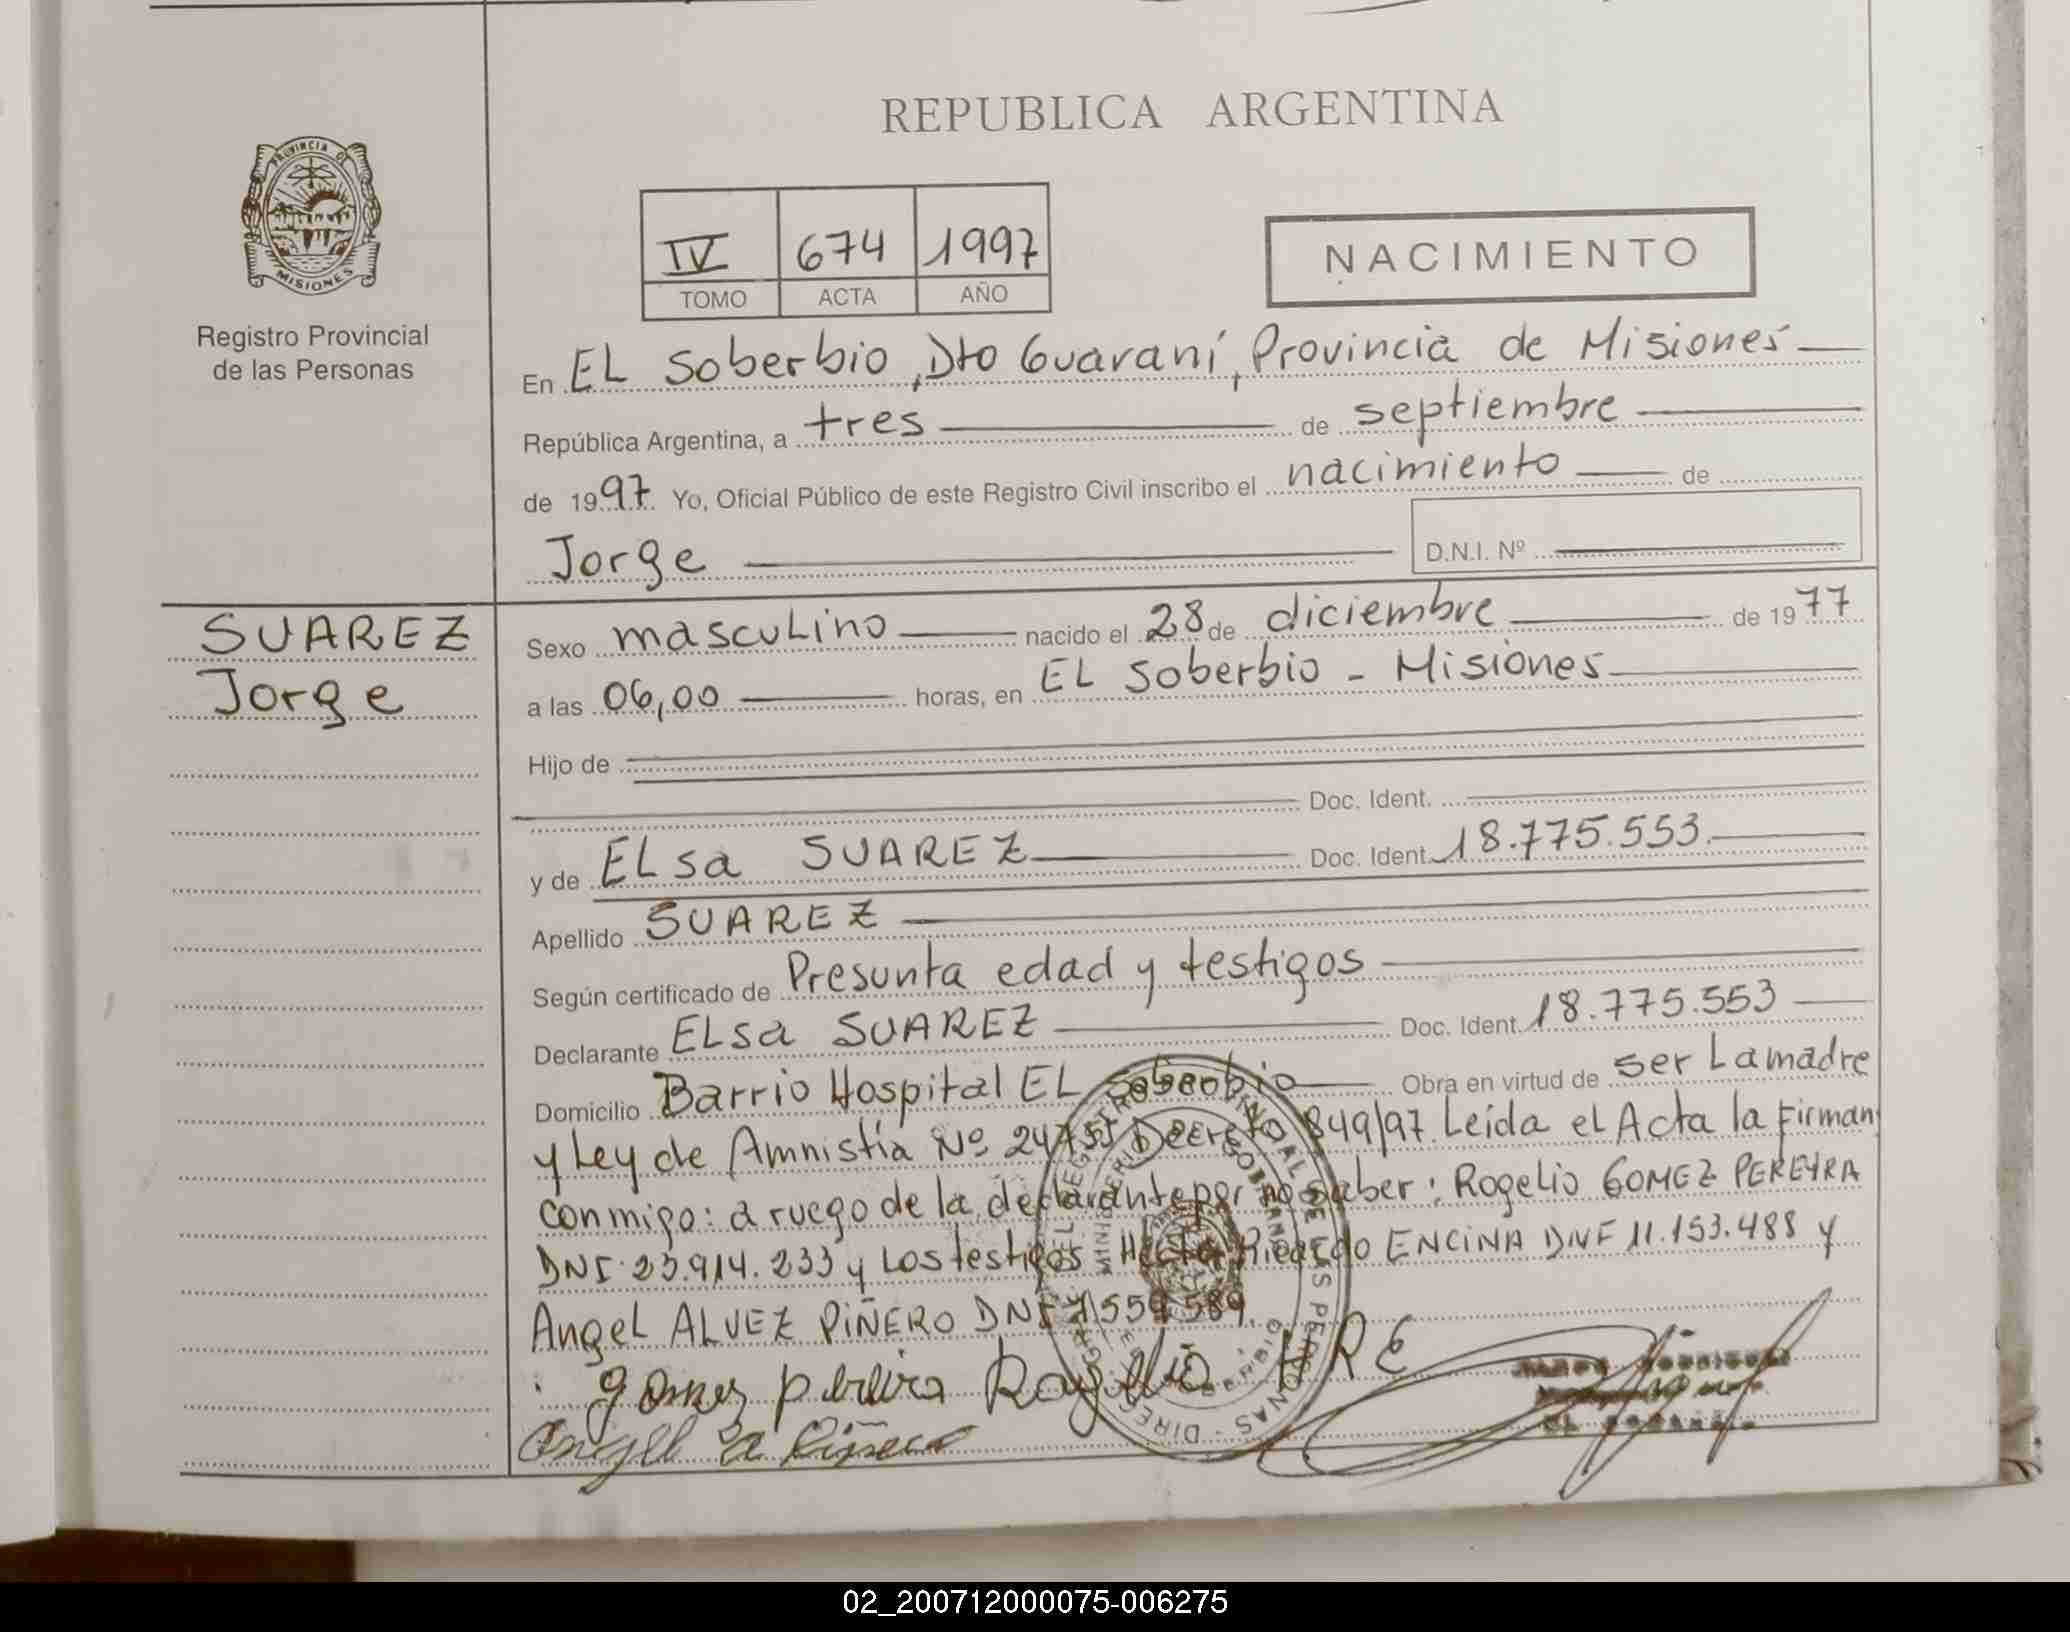 REPUBLICA ARGENTINA
PROVINCIA DE
MISIONES
Registro Provincial
de las Personas
IV 674 1997
TOMO ACTA AÑO
NACIMIENTO
En EL Soberbio, Dto Guaraní, Provincia de Misiones
República Argentina, a tres de septiembre
de 1997 Yo, Oficial Público de este Registro Civil inscribo el nacimiento de
Jorge D.N.I. Nº
SUAREZ
Jorge
Sexo masculino nacido el 28 de diciembre de 1977
a las 06,00 horas, en EL Soberbio - Misiones
Hijo de
Doc. Ident.
y de ELsa SUAREZ Doc. Ident. 18.775.553.
Apellido SUAREZ
Según certificado de Presunta edad y testigos
Declarante ELsa SUAREZ Doc. Ident. 18.775.553
Domicilio Barrio Hospital EL Soberbio Obra en virtud de ser La madre
y Ley de Amnistía Nº 24755 Decreto 849/97. Leída el Acta la Firman
conmigo: a ruego de la declarante por no saber: Rogelio GOMEZ PEREYRA
DNI 23.914.233 y Los testigos Hector Ricardo ENCINA DNI 11.153.488 y
Angel ALVEZ PIÑERO DNI
gomes pereira Rogelio HRE
Angel a Piñero
02_200712000075-006275